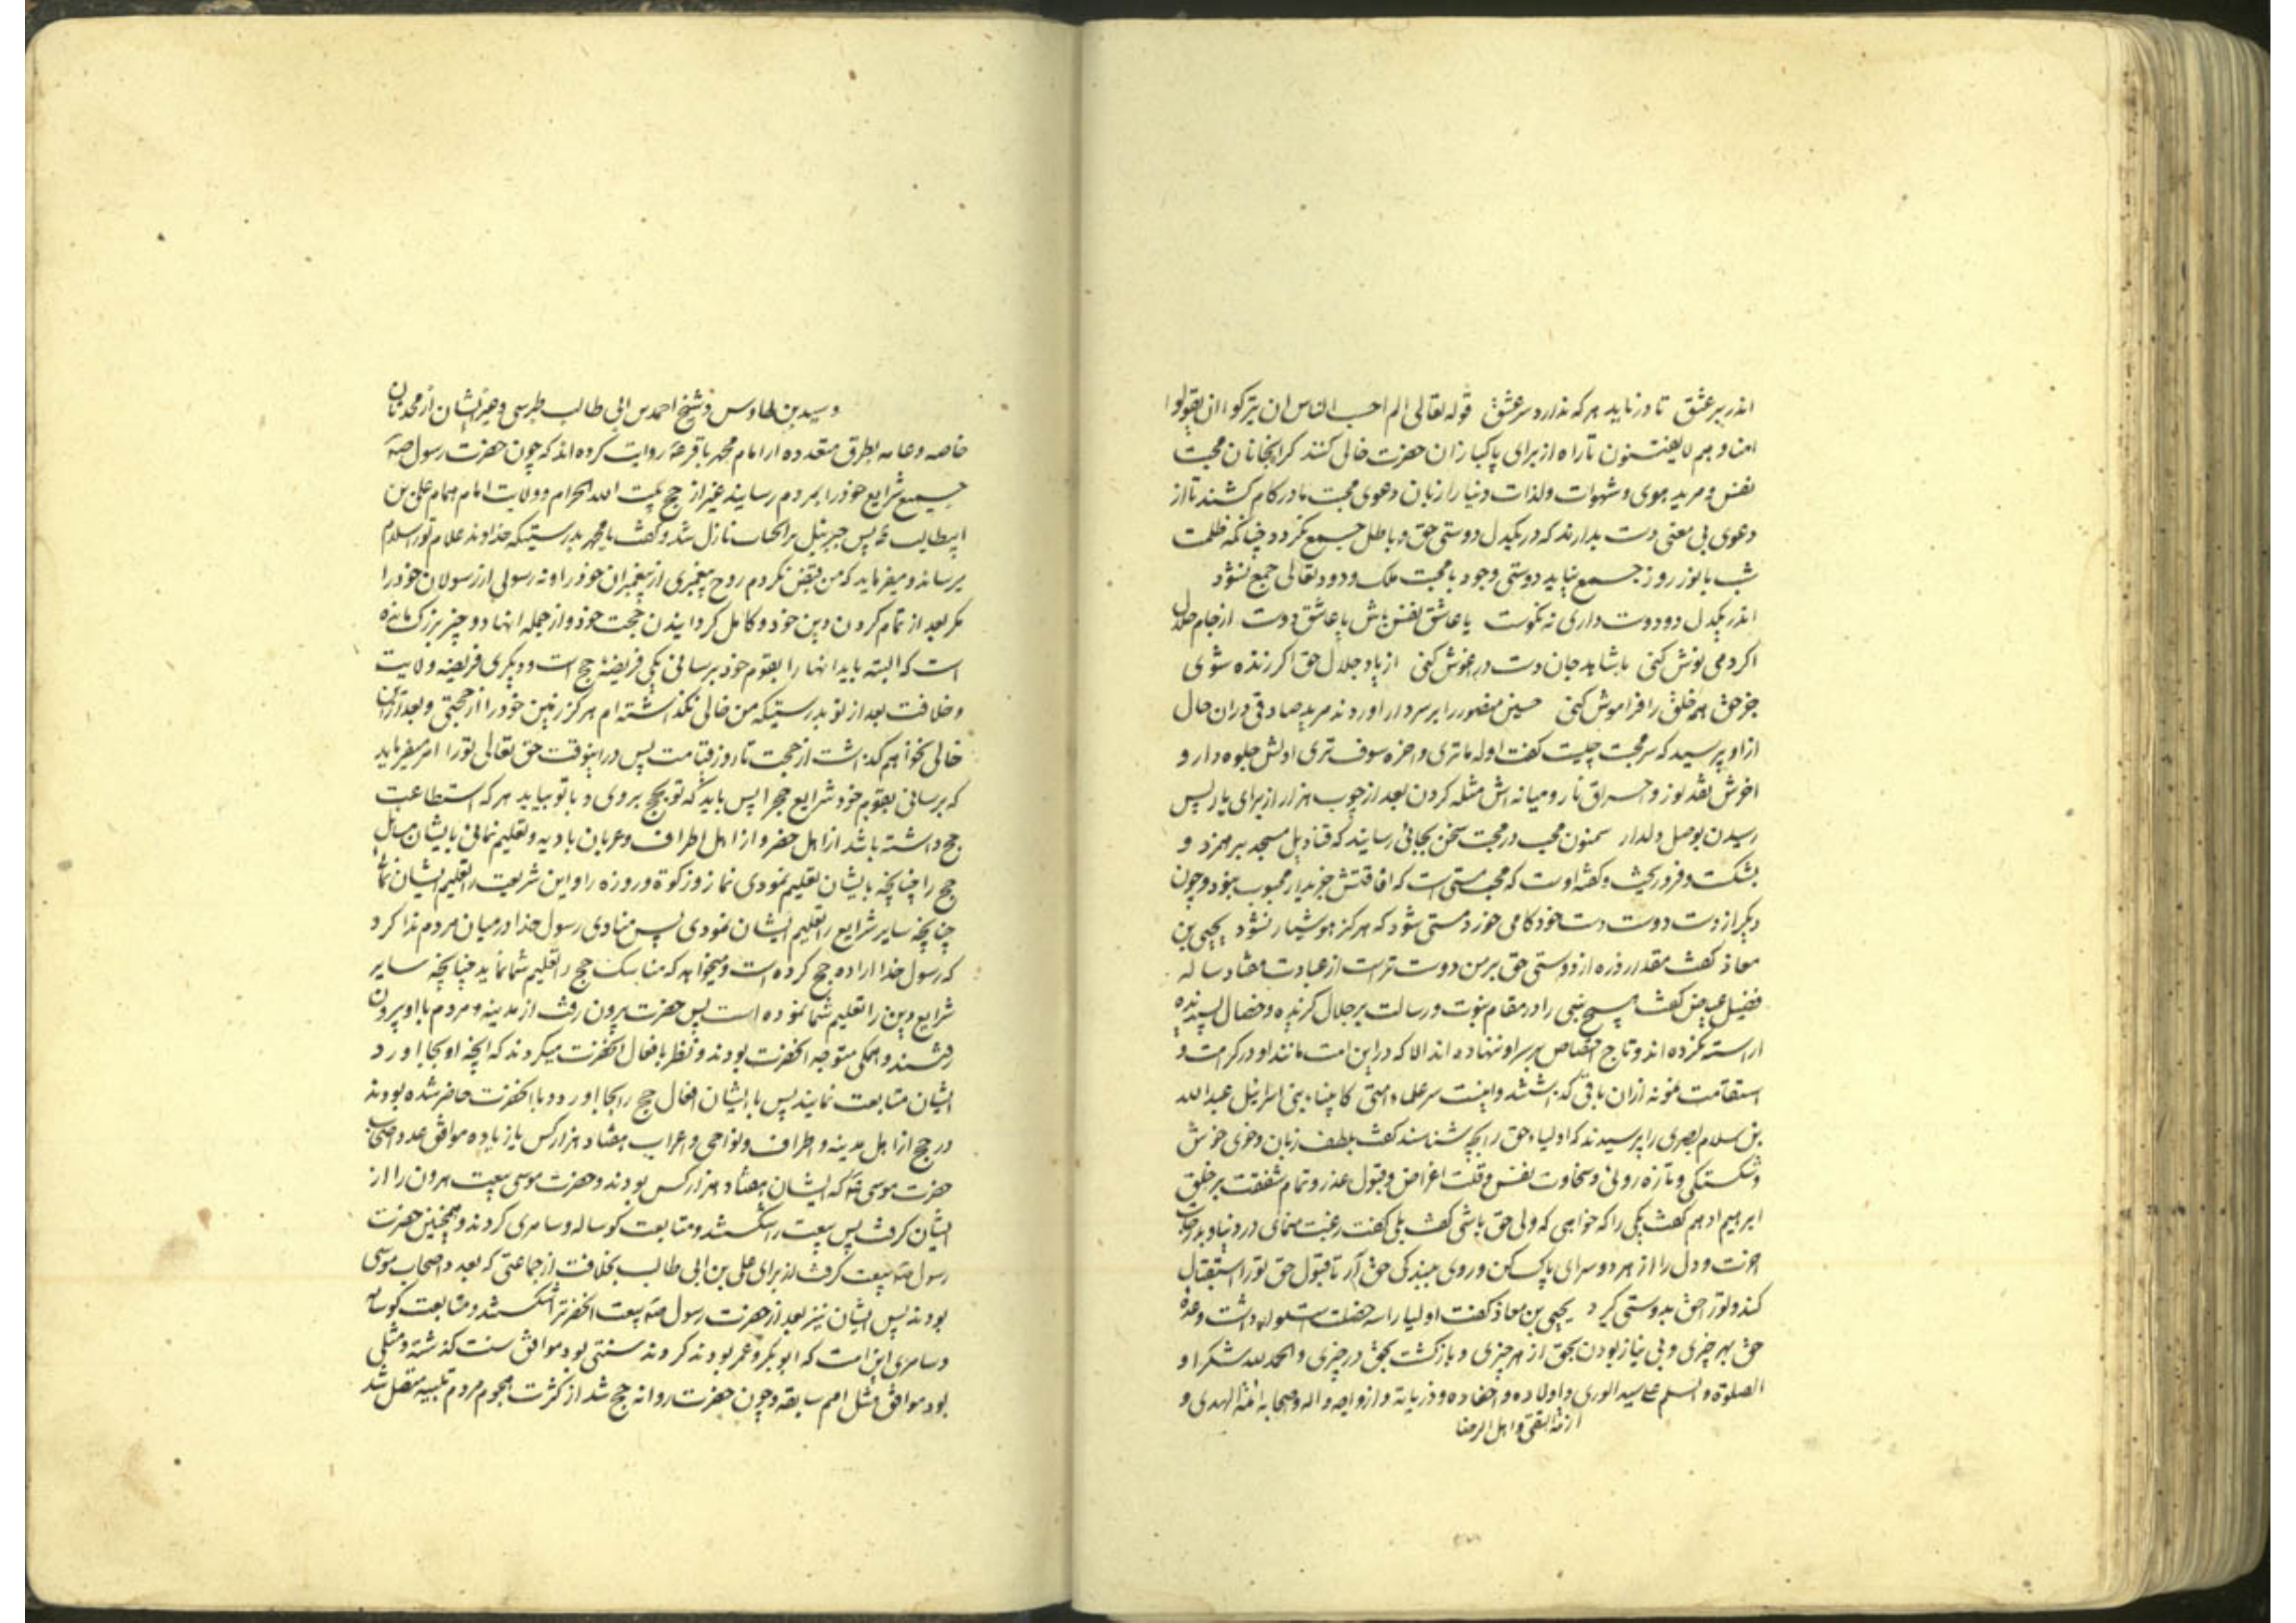 اندر بر عشق تا در نیاید هر که ندارد سر عشق قوله تعالی الم احسب الناس ان یترکوا ان یقولوا
امنا و هم لا یفتنون تا راه از برای پاکبازان حضرت خالی کنند کرانجانان محبت
نفس و مرید هوی و شهوات و لذات دنیا را زبان دعوی محبت ما در کام کشند تا از
دعوی بی معنی دست بدارند که در یکدل دوستی حق و باطل جمع نکردد چنانکه ظلمت
شب با نور روز جمع نیاید دوستی وجود با محبت ملک ودود تعالی جمع نشود
اندر یکدل دو دوست داری نه نکوست یا عاشق نفس باش یا عاشق دوست از جام حلال
اکر دمی نوش کنی باشاهد جان دست در اغوش کنی از یاد جلال حق اکر زنده شوی
جز حق همه خلق را فراموش کنی حسین منصور را بر سر دار اوردند مرید صادقی در ان حال
از او پرسید که سر محبت چیست کفت اوله ماتری و اخره سوف تری اولش جلوه دار و
اخرش نقد نور و احراق نار و میانه اش مثله کردن بعد از چوب هزار از برای یار پس
رسیدن بوصل دلدار سمنون محب در محبت سخن بجائی رسانید که قنادیل مسجد بر هم زد و
بشکست و فرو ریخت و کفته اوست که محب مستی است که افاقتش جز بدیدار محبوب نبود و چون
دیکر از دست دوست دست خود کامی خورد مستی شود که هرکز هوشیار نشود یحیی بن
معاذ کفت مقدار ذره از دوستی حق بر من دوست تر است از عبادت هفتاد ساله
فضیل عیاض کفت هیچ نبی را در مقام نبوت و رسالت بر جلال کزیده و خصال پسندیده
اراسته نکرده اند و تاج اختصاص بر سر او ننهاده اند الا که در این امت مانند او در کرامت و
استقامت نمونه از ان باقی کذاشتند و اینست سر علماء امتی کانبیاء بنی اسرائیل عبد الله
بن سلام بصری را پرسیدند که اولیاء حق را بچه شناسند کفت بلطف زبان و خوی خوش
و شکستکی و تازه روئی و سخاوت نفس و قلت اعراض و قبول عذر و تمام شفقت بر خلق
ابرهیم ادهم کفت یکی را که خواهی که ولی حق باشی کفت بلی کفت رغبت منمای در دنیا و
اخرت و دل را از هر دو سرای پاک کن و روی ببندکی حق آر تا قبول حق تو را استقبال
کند و تو را حق بدوستی کیرد یحیی بن معاذ کفت اولیا را سه خصلت است و عده
حق بهر چیزی و بی نیاز بودن بحق از هر چیزی و باز کشت بحق در چیزی و الحمد لله شکرا و
الصلوة و السلم علی سید الوری و اولاده و احفاده و ذریاته و ازواجه و اله و صحابه ائمة الهدی و
ازمة التقی و اهل الرضا
و سید بن طاوس و شیخ احمد بن ابی طالب طبرسی و غیر ایشان از محدثان
خاصه و عامه بطرق متعدده از امام محمد باقر ع روایت کرده اند که چون حضرت رسول ص
جمیع شرایع خود را بمردم رسانید غیر از حج بیت الله الحرام و ولایت امام همام علی بن
ابیطالب ع پس جبرئیل بر انجناب نازل شد و کفت یا محمد بدرستیکه خداوند علام تو را سلام
میرساند و میفرماید که من قبض نکردم روح پیغمبری از پیغمبران خود را و نه رسولی از رسولان خود را
مکر بعد از تمام کردن دین خود و کامل کردانیدن حجت خود و از جمله انها دو چیز بزرک مانده
است که البته باید انها را بقوم خود برسانی یکی فریضه حج است و دیکری فریضه ولایت
و خلافت بعد از تو بدرستیکه من خالی نکذاشته ام هرکز زمین خود را از حجتی و بعد از این
خالی نخواهم کذاشت از حجت تا روز قیامت پس در اینوقت حق تعالی تو را امر میفرماید
که برسانی بقوم خود شرایع حج را پس باید که تو بحج بروی و با تو بیاید هر که استطاعت
حج داشته باشد از اهل حضر و از اهل اطراف و عربان بادیه و تعلیم نمائی بایشان مسایل
حج را چنانچه بایشان تعلیم نمودی نماز و زکوة و روزه را و این شریعت را تعلیم ایشان نما
چنانچه سایر شرایع را تعلیم ایشان نمودی پس منادی رسول خدا در میان مردم ندا کرد
که رسول خدا اراده حج کرده است و میخواهد که مناسک حج را تعلیم شما نماید چنانچه سایر
شرایع دین را تعلیم شما نموده است پس حضرت بیرون رفت از مدینه و مردم با او بیرون
رفتند و همکی متوجه انحضرت بودند و نظر بافعال انحضرت میکردند که انچه او بجا اورد
ایشان متابعت نمایند پس با ایشان افعال حج را بجا اورد و با انحضرت حاضر شده بودند
در حج از اهل مدینه و اطراف و نواحی و اعراب هفتاد هزار کس یا زیاده موافق عدد اصحاب
حضرت موسی ع که ایشان هفتاد هزار کس بودند و حضرت موسی بیعت هرون را از
ایشان کرفت پس بیعت را شکستند و متابعت کوساله و سامری کردند و همچنین حضرت
رسول ص بیعت کرفت از برای علی بن ابی طالب بخلافت از جماعتی که بعدد اصحاب موسی
بودند پس ایشان نیز بعد از حضرت رسول ص بیعت انحضرترا شکستند و متابعت کوساله
و سامری این امت که ابو بکر و عمر بودند کردند سنتی بود موافق سنت کذشته و مثلی
بود موافق مثل امم سابقه و چون حضرت روانه حج شد از کثرت هجوم مردم تلبیه متصل شد